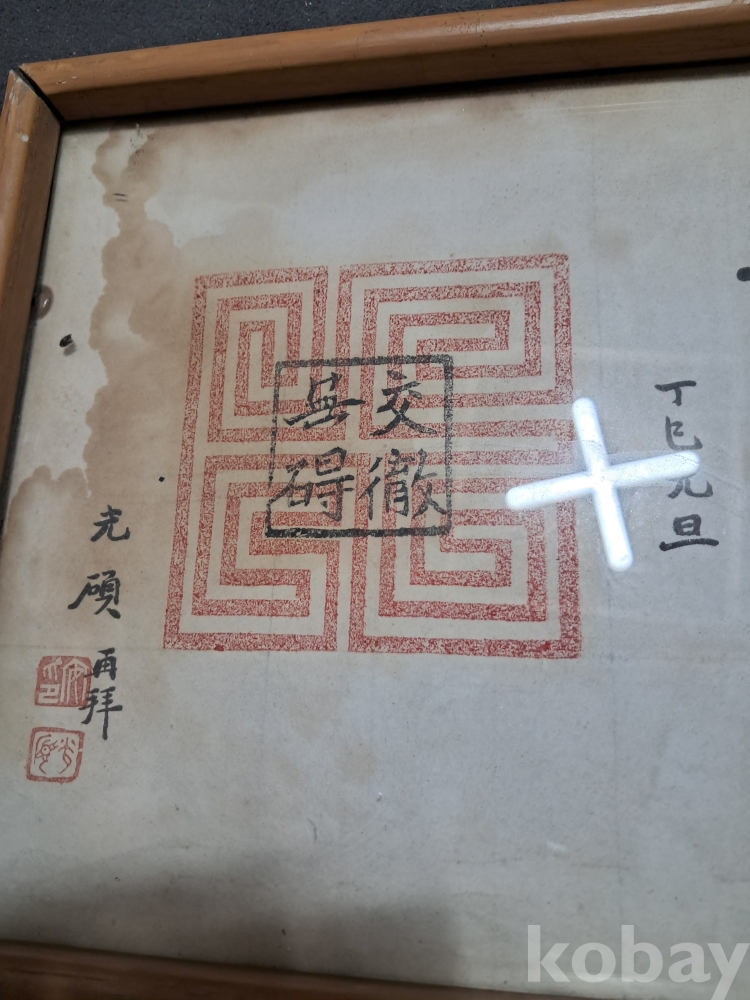 丁巳元旦
交徹
無碍
光碩 再拜
kobay